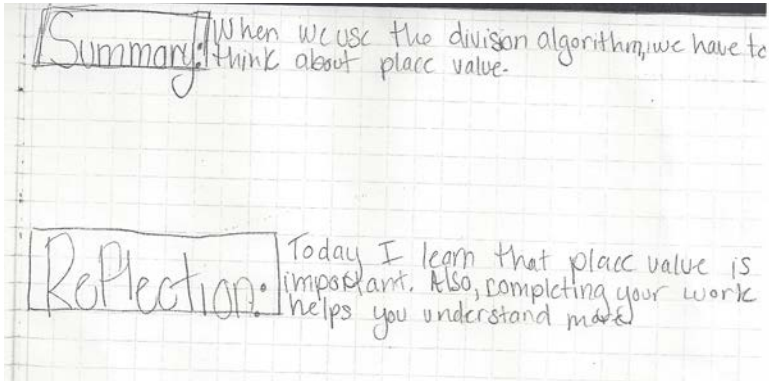 Summary: When we use the divison algorithm, we have to
think about place value.
Reflection: Today I learn that place value is
important. Also, completing your work
helps you understand more